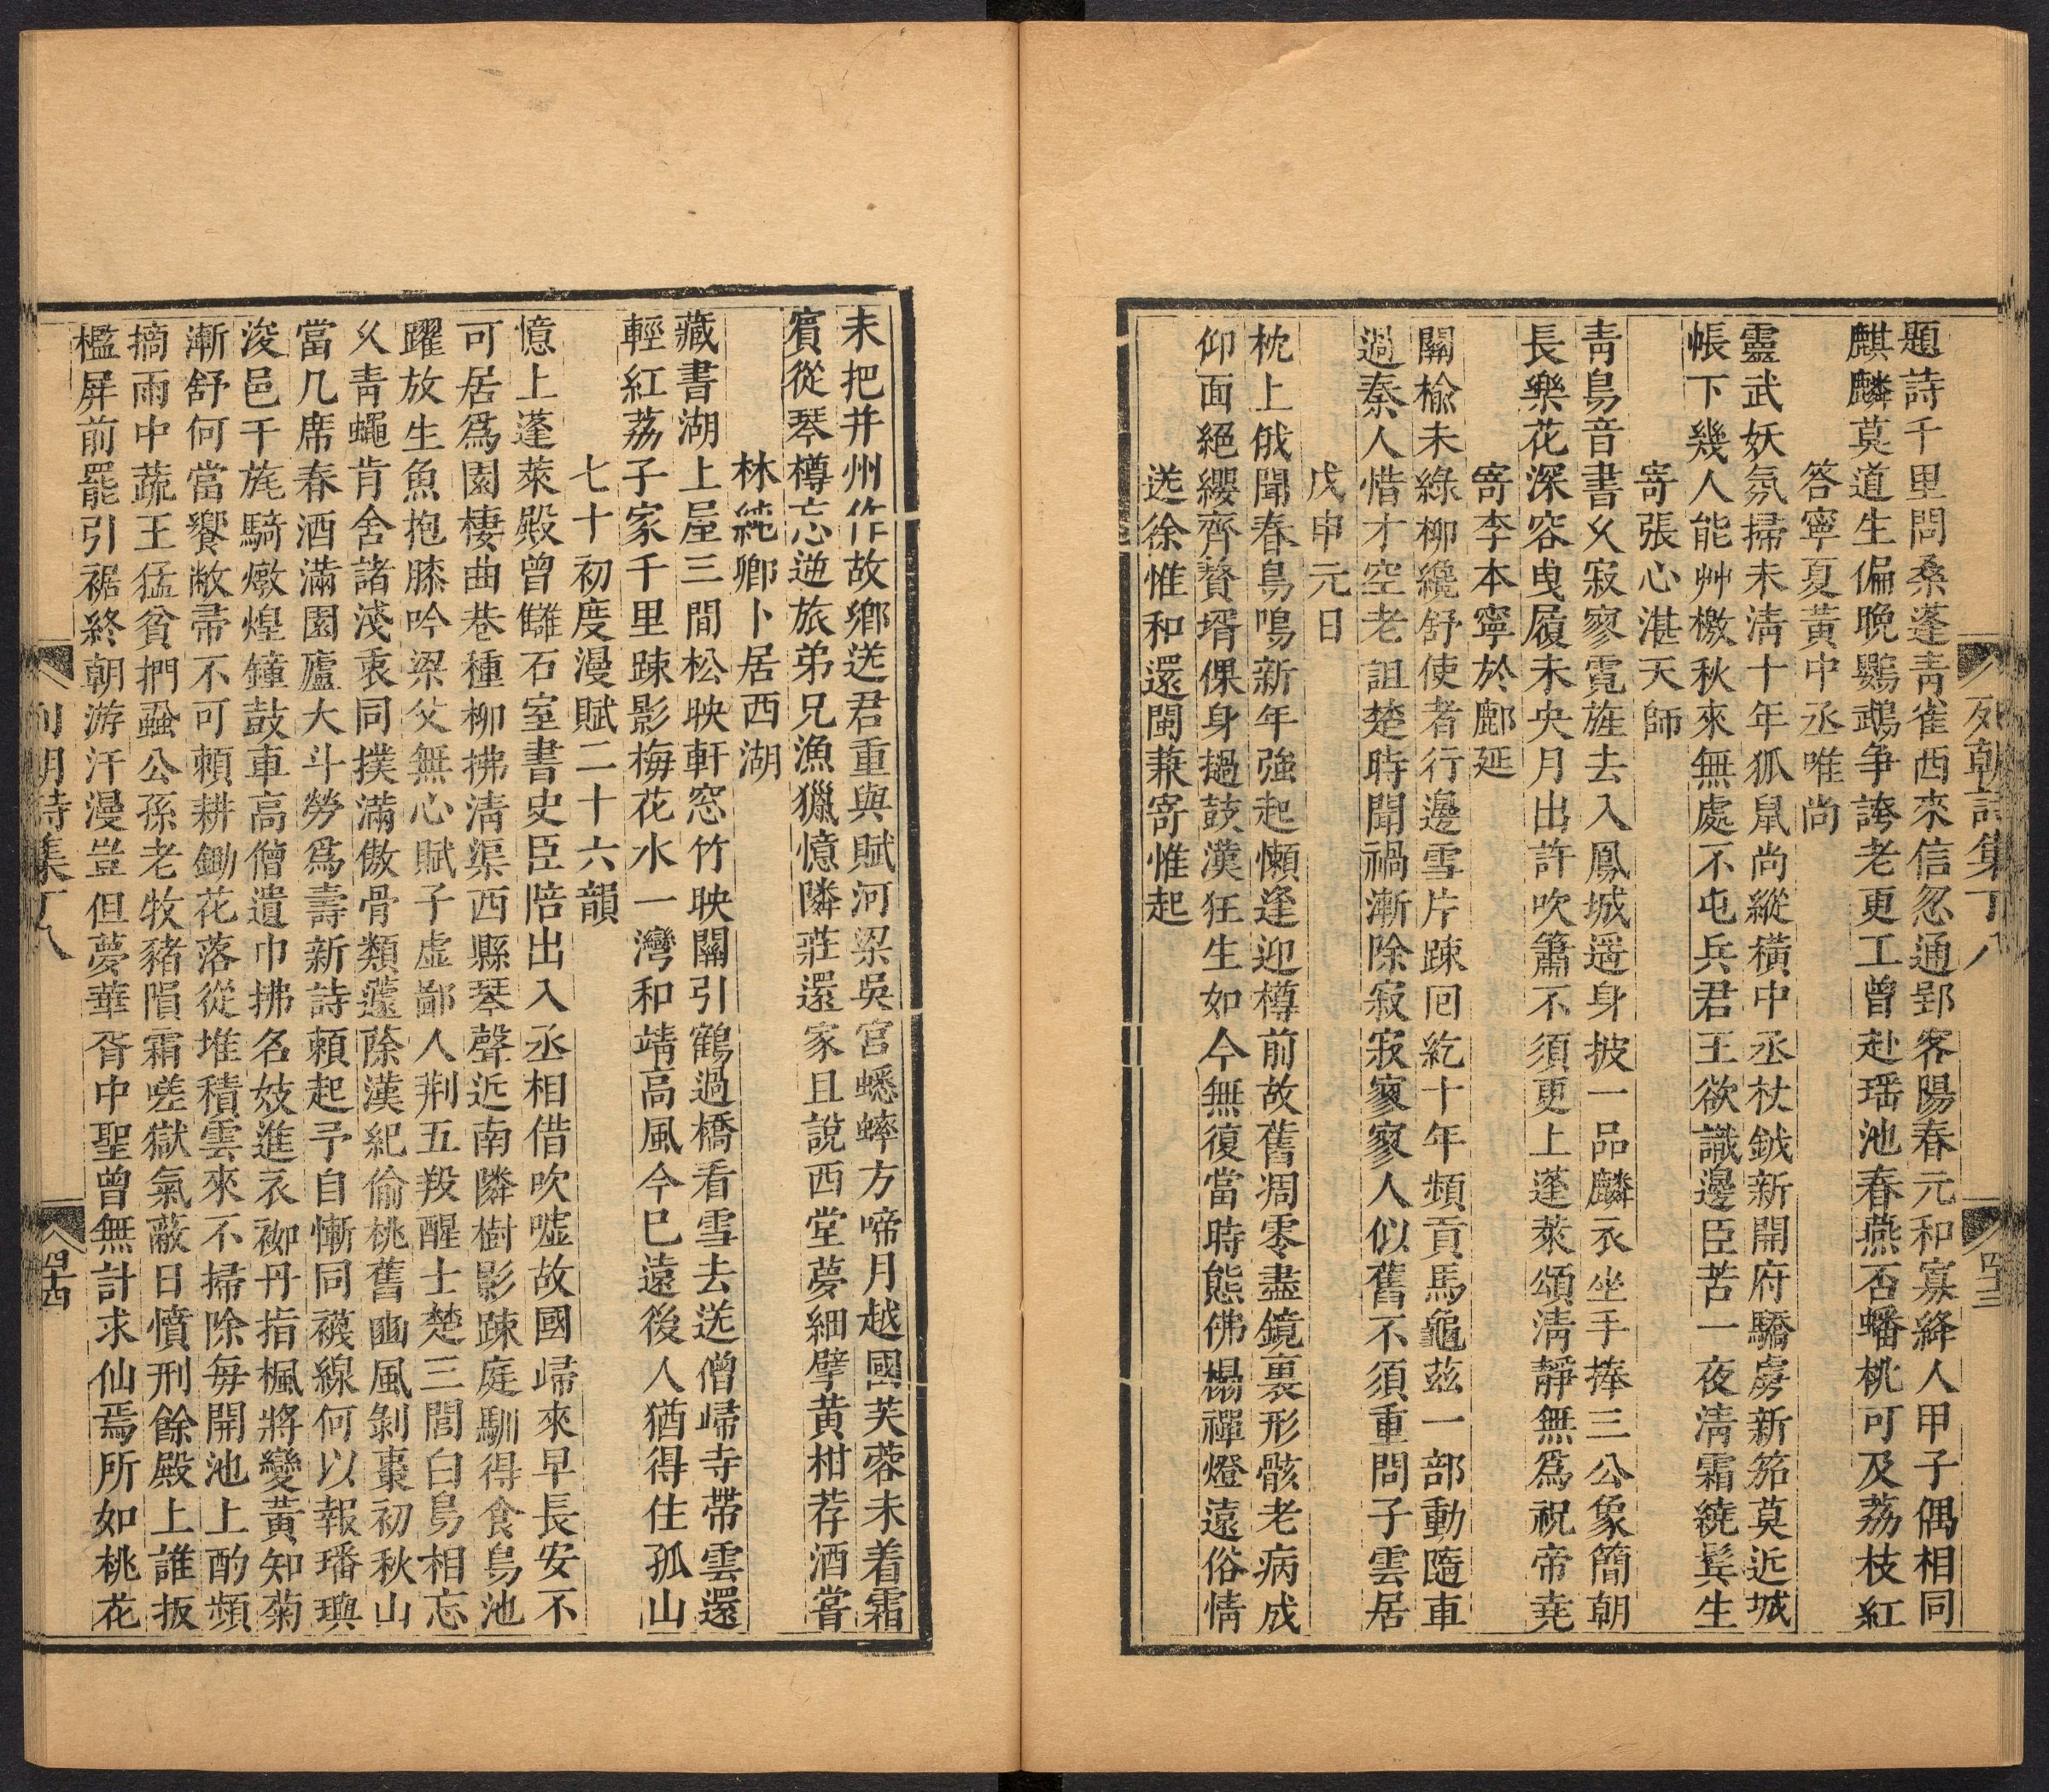 列朝詩集丁八
四十三
題詩千里問桑蓬靑雀西來信忽通郢客陽春元和寡絳人甲子偶相同
麒麟莫道生偏晚鸚鵡爭誇老更工曾赴瑤池春燕否蟠桃可及荔枝紅
答寧夏黃中丞唯尚
靈武妖氛掃未淸十年狐鼠尚縱橫中丞杖鉞新開府驕虜新笳莫近城
帳下幾人能艸檄秋來無處不屯兵君王欲識邊臣苦一夜淸霜繞鬂生
寄張心湛天師
靑鳥音書乆寂寥霓旌去入鳳城遥身披一品麟衣坐手捧三公象簡朝
長樂花深容曳履未央月出許吹簫不須更上蓬萊頌淸靜無爲祝帝堯
寄李本寧於鄜延
關楡未綠柳纔舒使者行邊雪片踈囘紇十年頻貢馬龜茲一部動隨車
過秦人惜才空老詛楚時聞禍漸除寂寂寥寥人似舊不須重問子雲居
戊申元日
枕上俄聞春鳥鳴新年強起懶逢迎樽前故舊凋零盡鏡裏形骸老病成
仰面絕纓齊贅壻倮身撾鼓漢狂生如今無復當時態佛榻禪燈遠俗情
送徐惟和還閩兼寄惟起
未把并州作故鄉送君重與賦河梁吳宮蟋蟀方啼月越國芙蓉未着霜
賓從琴樽忘逆旅弟兄漁獵憶隣莊還家且說西堂夢細擘黃柑荐酒嘗
林純卿卜居西湖
藏書湖上屋三間松映軒窓竹映關引鶴過橋看雪去送僧歸寺帶雲還
輕紅荔子家千里踈影梅花水一灣和靖高風今已遠後人猶得住孤山
七十初度漫賦二十六韻
憶上蓬萊殿曾讎石室書史臣陪出入丞相借吹噓故國歸來早長安不
可居爲園棲曲巷種柳拂淸渠西縣琴聲近南隣樹影踈庭馴得食鳥池
躍放生魚抱膝吟梁父無心賦子虚鄙人荆五羖醒士楚三閭白鳥相忘
乆靑蠅肯舍諸淺衷同撲滿傲骨類蘧蒢漢紀偷桃舊豳風剝棗初秋山
當几席春酒滿園廬大斗勞爲壽新詩頼起予自慚同襪線何以報璠璵
浚邑干旄騎燉煌鐘鼓車高僧遺巾拂名妓進衣袽丹指楓將變黃知菊
漸舒何當饗敝帚不可頼耕鋤花落從堆積雲來不掃除每開池上酌頻
摘雨中蔬王猛貧捫蝨公孫老牧豬隕霜嗟獄氣蔽日憤刑餘殿上誰扳
檻屏前罷引裾終朝游汗漫豈但夢華胥中聖曾無計求仙焉所如桃花
列朝詩集丁八
四十四